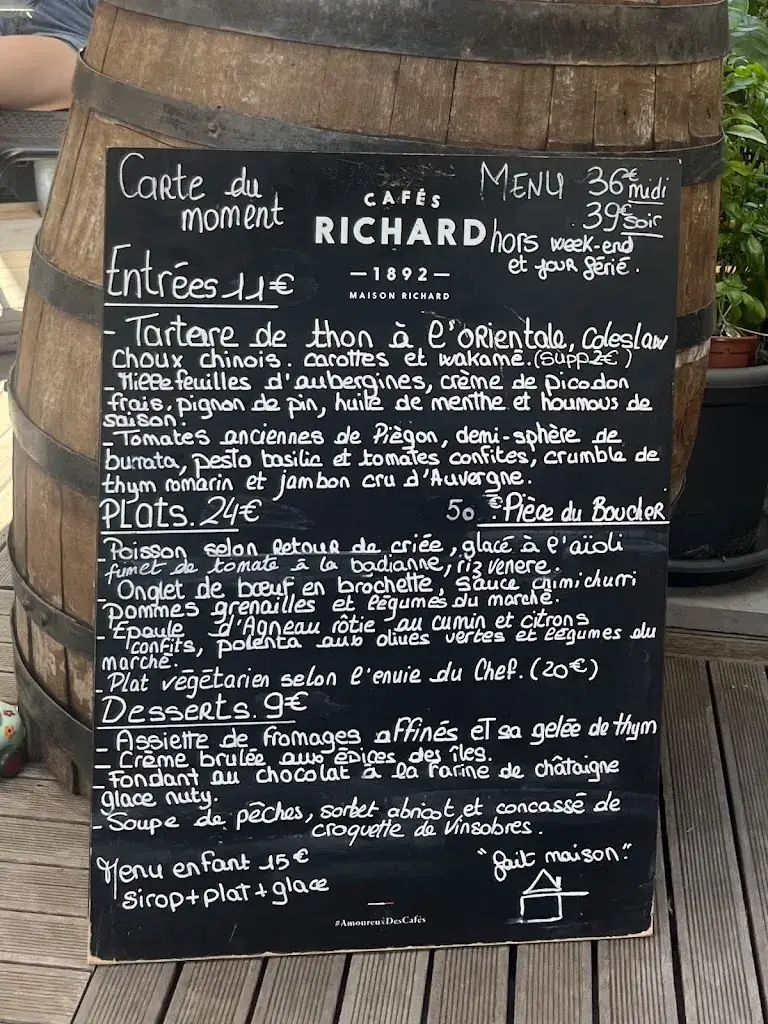 Carte du moment
CAFÉS
RICHARD
—1892—
MAISON RICHARD
MENU 36€ midi
39€ soir
hors week-end
et jour férié.
Entrées 11€
- Tartare de thon à l'orientale, Coleslaw
choux chinois. carottes et wakamé. (supp 2€)
- Millefeuilles d'aubergines, crème de picodon
frais, pignon de pin, huile de menthe et houmous de
saison.
- Tomates anciennes de Piégon, demi-sphère de
burrata, pesto basilic et tomates confites, crumble de
thym romarin et jambon cru d'Auvergne.
Plats. 24€
50€ : Pièce du Boucher
- Poisson selon Retour de criée, glacé à l'aïoli
fumet de tomate à la badiane, riz venere.
- Onglet de bœuf en brochette, sauce chimichurri
pommes grenailles et légumes du marché.
- Epaule d'Agneau rôtie au cumin et citrons
confits, polenta aux olives vertes et légumes du
marché.
- Plat végétarien selon l'envie du Chef. (20€)
Desserts. 9€
- Assiette de fromages affinés et sa gelée de thym
- Crème brulée aux épices des îles.
- Fondant au chocolat à la farine de châtaigne
glace nuty.
- Soupe de pêches, sorbet abricot et concassé de
croquette de Vinsobres.
Menu enfant 15€
sirop + plat + glace
"fait maison."
#AmoureuxDesCafés